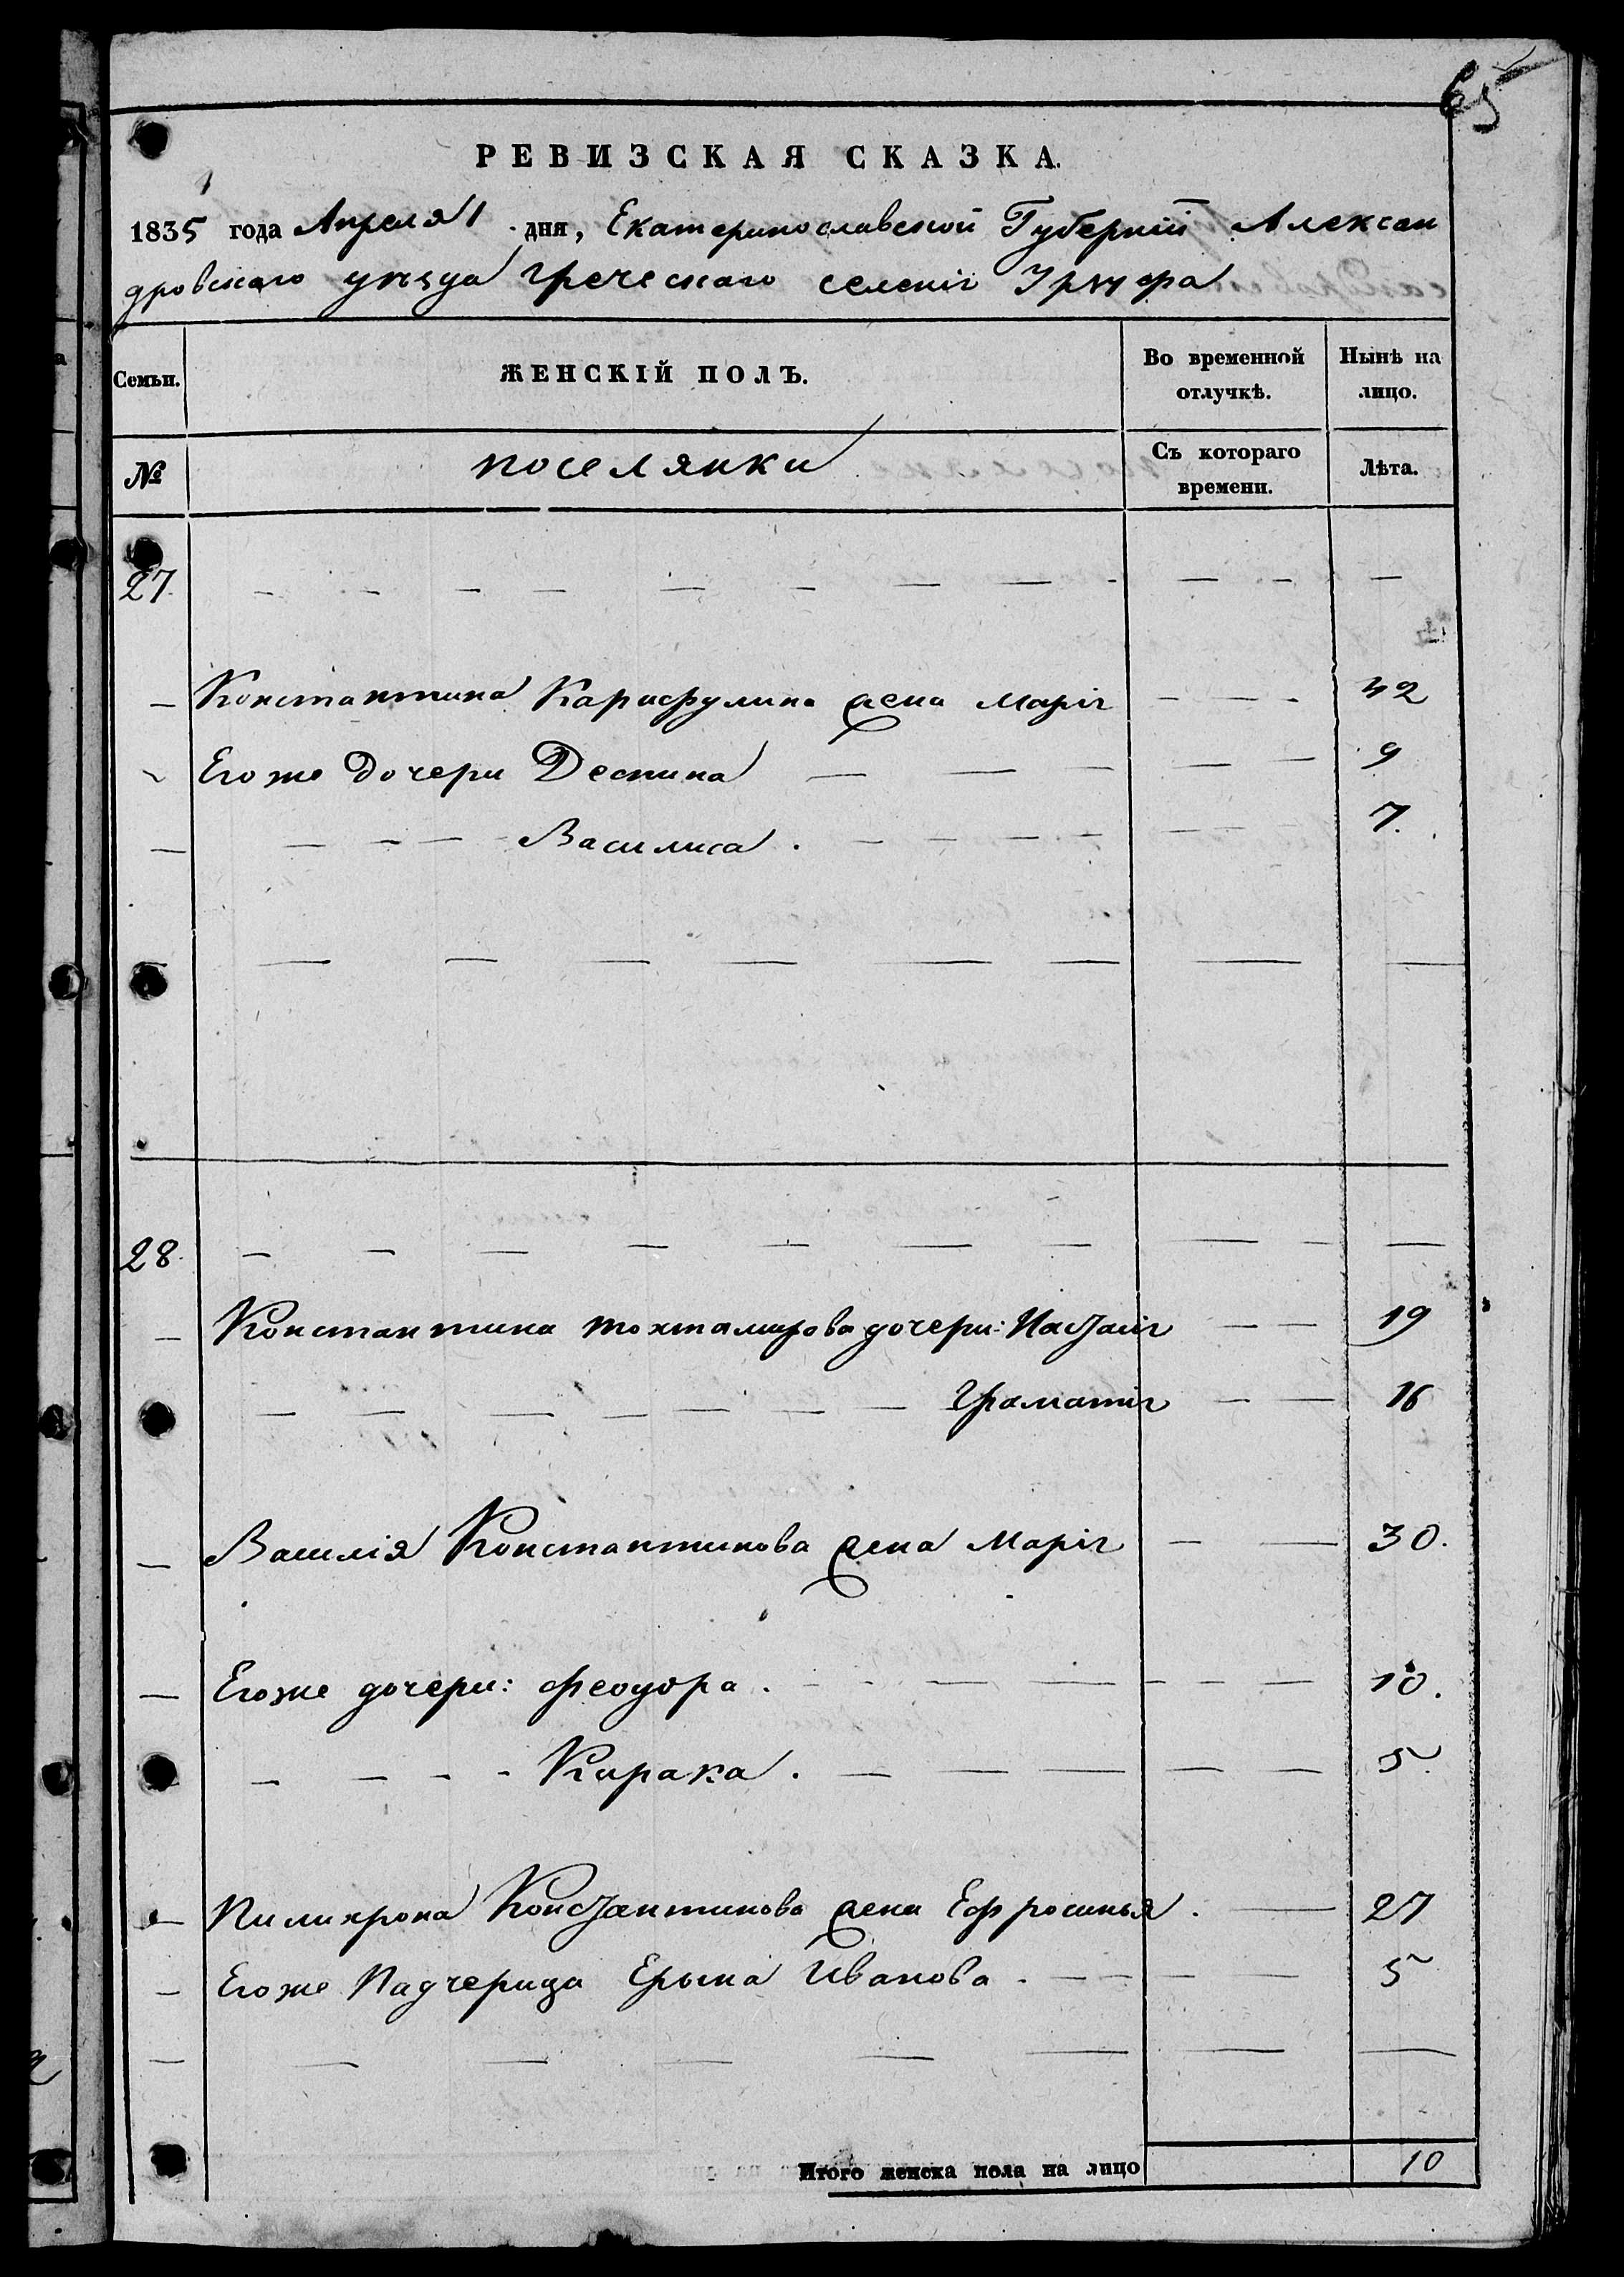 65
РЕВИЗСКАЯ СКАЗКА.
1835 года Апреля 1 дня, Екатеринославской Губернiи Алексан
дровскаго уѣзда Греческаго селенiя
Семьи. ЖЕНСКІЙ ПОЛЪ. Во временной отлучкѣ. Нынѣ на лицо.
№ поселянки Съ котораго времени. Лѣта.
27 — — — — — — — — — — —
— Константина жена Марiя — — — 42
Егоже дочери Деспина — — — — — 9
— — — — Василиса . — — — — — — 7.
— — — — — — — — —
28. — — — — — — — — — —
— Константина Тохтамирова дочери: Настасiя — — 19
— — — — — — — Граматiя — — 16
— Василiя Константинова жена Марiя — — 30.
— Егоже дочери: Феодора . — — — — — — 10.
— — — — Кирака . — — — — — 5.
— Пилихрона Константинова жена Ефросинья . — 27
— Егоже Падчерица Ерына Иванова . — — — — 5
— — — — — — — —
Итого женска пола на лицо 10